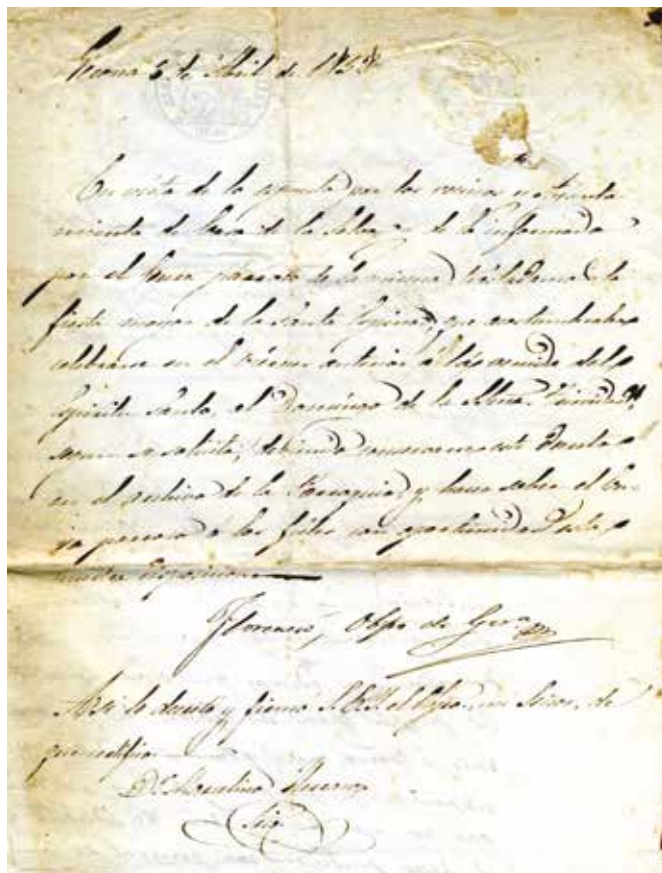 Gerona 5 de Abril de 185
En vista de lo espuesto por los vecinos y Ayunta
miento de de la Selva y de lo informado
por el Cura párroco de la misma trasladamos la
fiesta mayor de la Santa Espina, que acostumbraba
celebrarse en el viernes anterior á la venida del
Espiritu Santo, al Domingo de la Stma. Trinidad,
segun se solicita; debiendo conservarse este Decreto
en el archivo de la Parroquia, y hacer saber el Cu-
ra párroco á los fieles con oportunidad esta
nueva disposicion.
Florencio, Obpo de Gerona
Asi lo decretó y firmó S.E.I. el Obpo. mi Señor, de
que certifico.
Dr.
Srio.